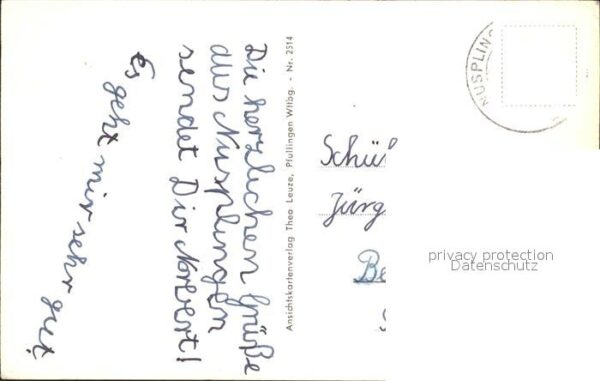 Die herzlichen Grüße
aus Nusplingen
sendet Dir Norbert!
Es geht mir sehr gut!
Ansichtskartenverlag Theo Leuze, Pfullingen Wttbg. - Nr. 2514
NUSPLIN
Schü
Jürg
Be
privacy protection
Datenschutz